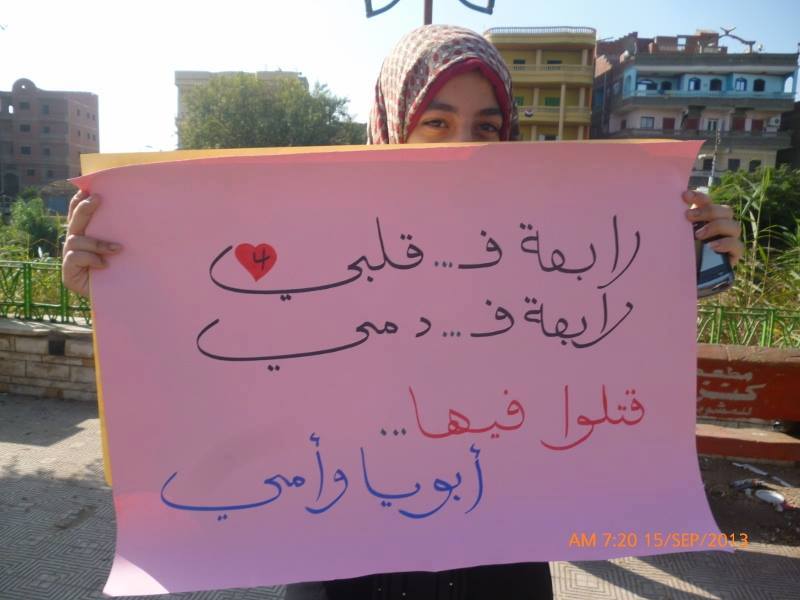 رابعة ف... قلبي 4
رابعة ف... دمي
قتلوا فيها...
أبويا وأمي
مطعم
للمشويات
AM 7:20 15/SEP/2013